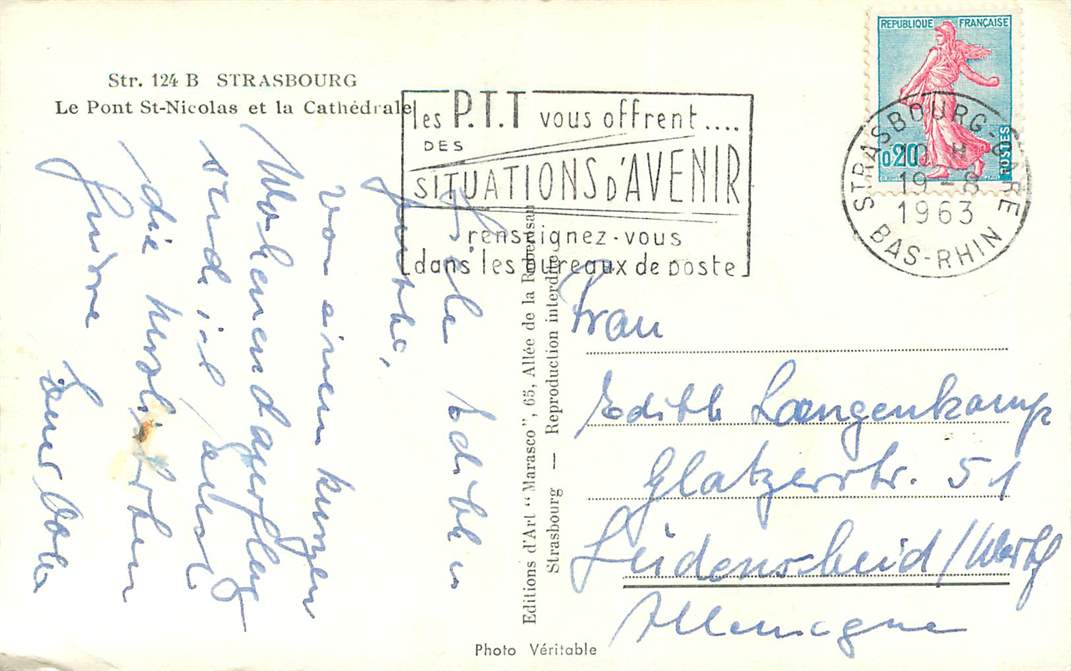 Str. 124 B STRASBOURG
Le Pont St-Nicolas et la Cathédrale
les P.T.T vous offrent....
DES
SITUATIONS D'AVENIR
renseignez-vous
dans les bureaux de poste
REPUBLIQUE FRANÇAISE
0,20
POSTES
STRASBOURG-GARE
19-8
1963
BAS-RHIN
Edith u
Günther,
von einem kurzen
Wochenendausflug
send ich Euch
die herzlichsten
Grüsse
Editions d'Art "Marasco", 65, Allée de la Robertsau
Strasbourg — Reproduction interdite
Frau
Edith Langenkamp
Glatzerstr. 51
Lüdenscheid/Westf
Allemagne
Photo Véritable